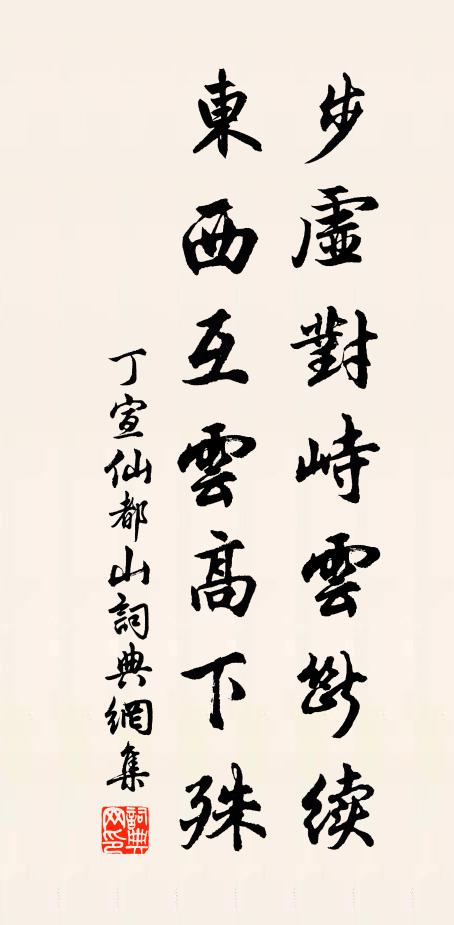 步虛對峙雲斷續
東西互雲高下殊
丁宣仙都山詞典網集
詞典
网印